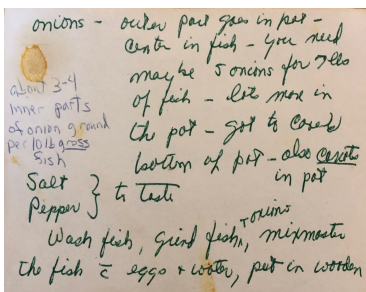 onions - outer part goes in pot -
center in fish - you need
maybe 5 onions for 7 lbs
of fish - lots more in
the pot - got to cover
bottom of pot - also carrots
in pot
about 3-4
inner parts
of onion ground
per 10 lb gross
fish
Salt
Pepper } to taste
Wash fish, grind fish, + onions, mixmaster
the fish c̄ eggs + water, put in wooden